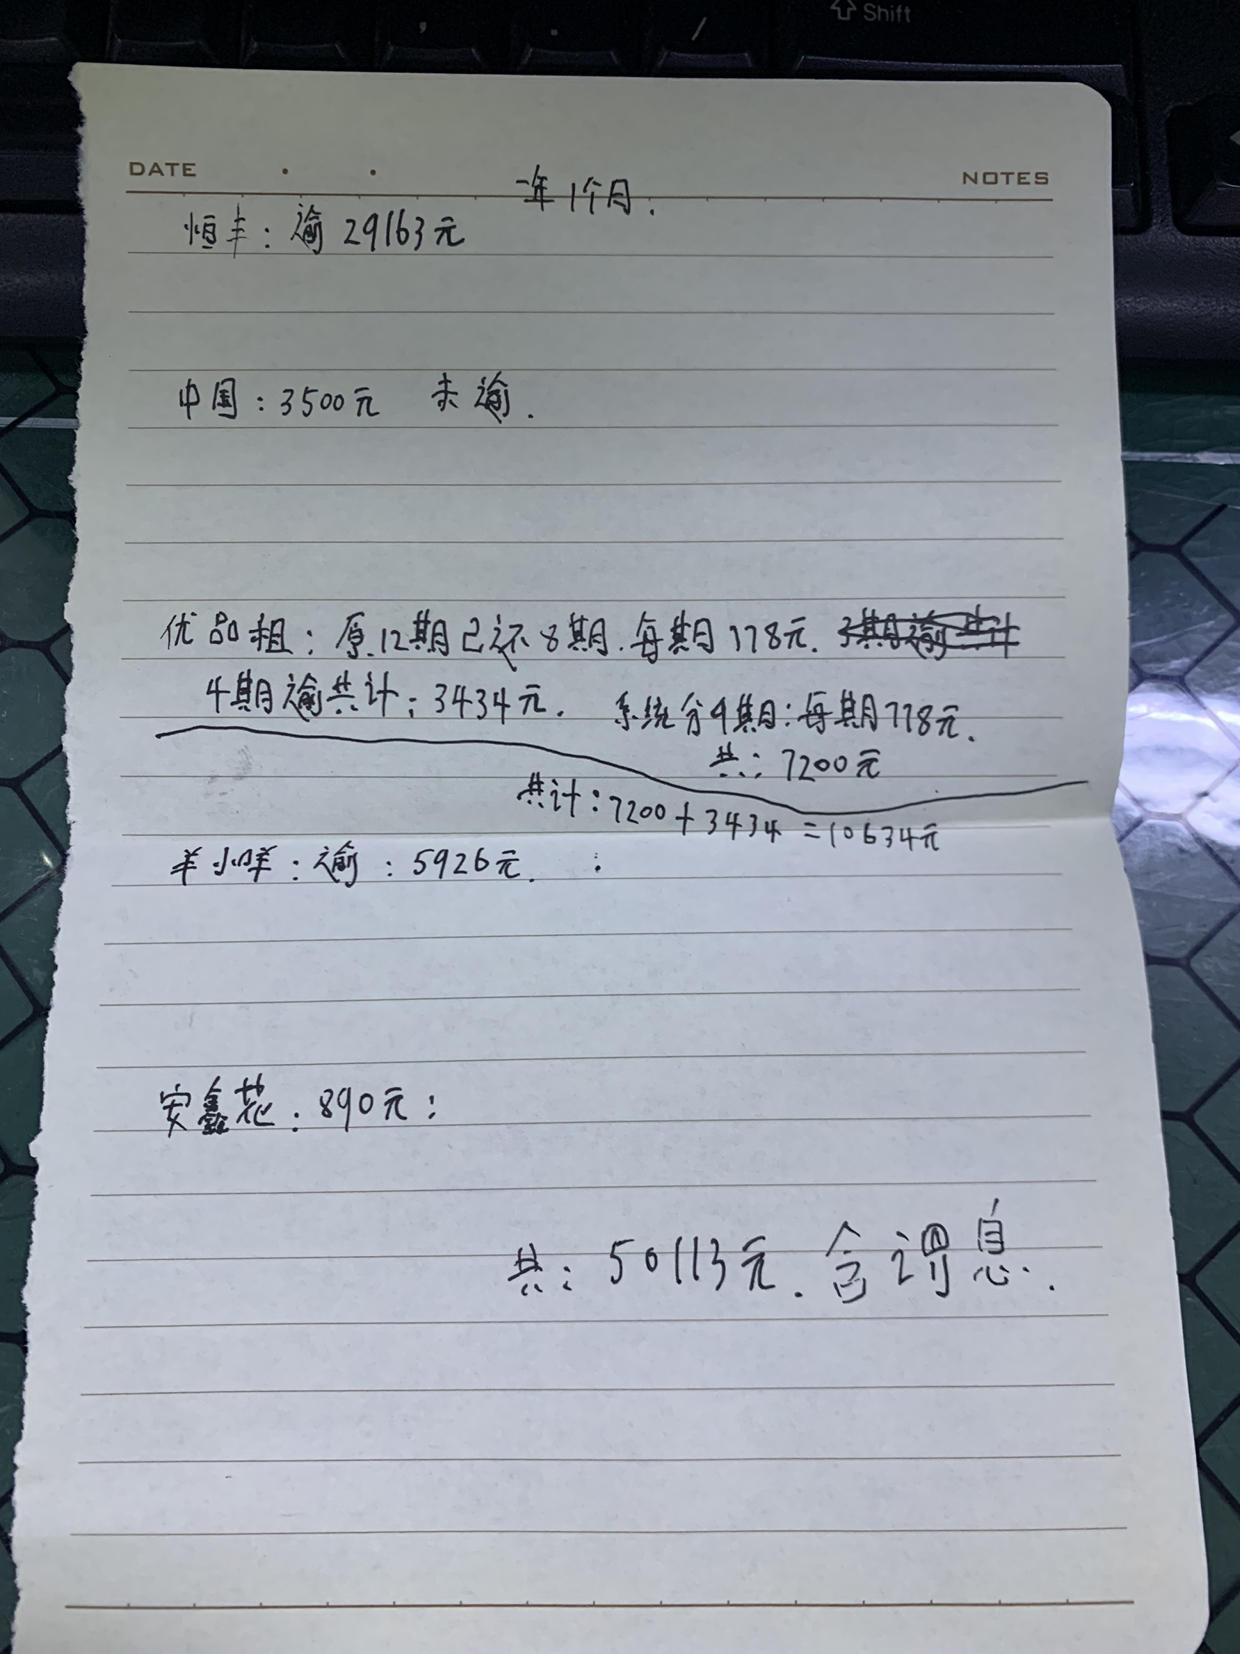 Shift
DATE
NOTES
一年1个月.
恒丰: 逾 29163元
中国: 3500元 未逾.
优品租: 原12期已还8期.每期778元.
4期逾共计: 3434元. 系统分9期: 每期778元.
共: 7200元
共计: 7200+3434=10634元
羊小咩: 逾: 5926元.
安鑫花: 890元:
共: 50113元. 含谓息.